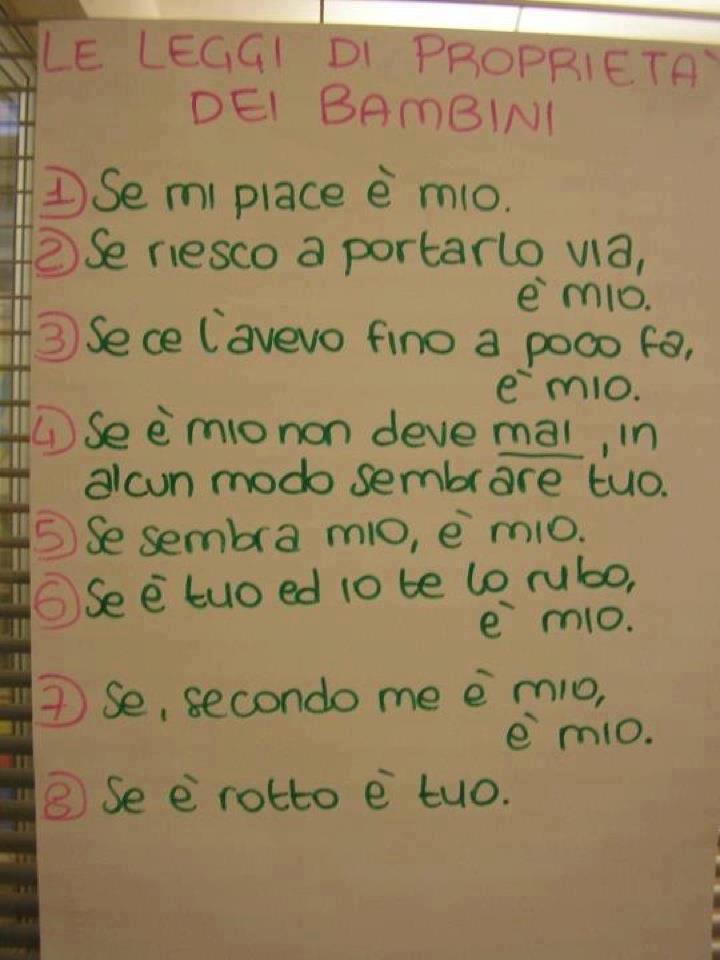 LE LEGGI DI PROPRIETA'
DEI BAMBINI
1) Se mi piace è mio.
2) Se riesco a portarlo via,
è mio.
3) Se ce l'avevo fino a poco fa,
è mio.
4) Se è mio non deve mai, in
alcun modo sembrare tuo.
5) Se sembra mio, è mio.
6) Se è tuo ed io te lo rubo,
è mio.
7) Se, secondo me è mio,
è mio.
8) Se è rotto è tuo.